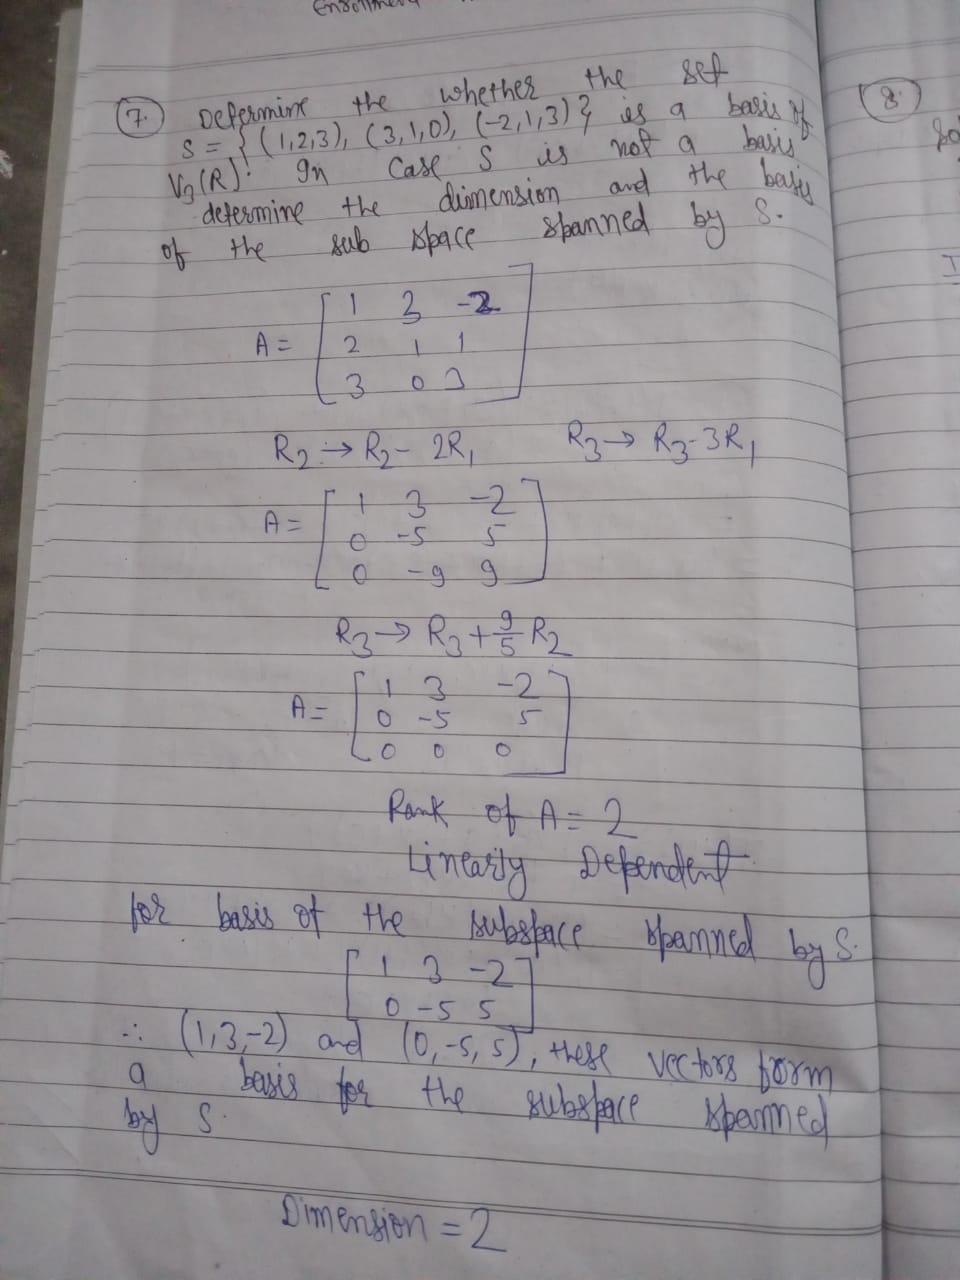 7. Determine the whether the set
S = { (1,2,3), (3,1,0), (-2,1,3) } is a basis of
V3(R). In case S is not a basis
determine the dimension and the basis
of the sub space spanned by S.
A = [ 1 3 -2
2 1 1
3 0 3 ]
R2 → R2 - 2R1 R3 → R3 - 3R1
A = [ 1 3 -2
0 -5 5
0 -9 9 ]
R3 → R3 + 9/5 R2
A = [ 1 3 -2
0 -5 5
0 0 0 ]
Rank of A = 2
Linearly Dependent
for basis of the subspace spanned by S.
[ 1 3 -2
0 -5 5 ]
∴ (1,3,-2) and (0,-5,5), these vectors form
a basis for the subspace spanned
by S.
Dimension = 2
8.